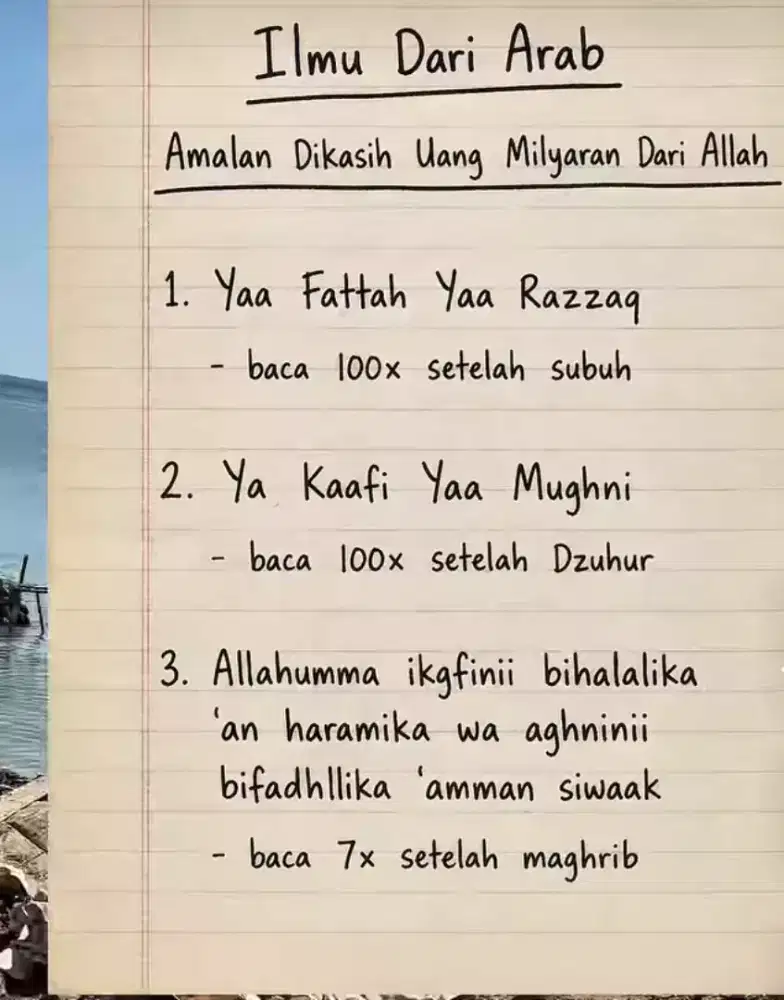 Ilmu Dari Arab
Amalan Dikasih Uang Milyaran Dari Allah
1. Yaa Fattah Yaa Razzaq
- baca 100x setelah subuh
2. Ya Kaafi Yaa Mughni
- baca 100x setelah Dzuhur
3. Allahumma ikgfinii bihalalika
'an haramika wa aghninii
bifadhllika 'amman siwaak
- baca 7x setelah maghrib